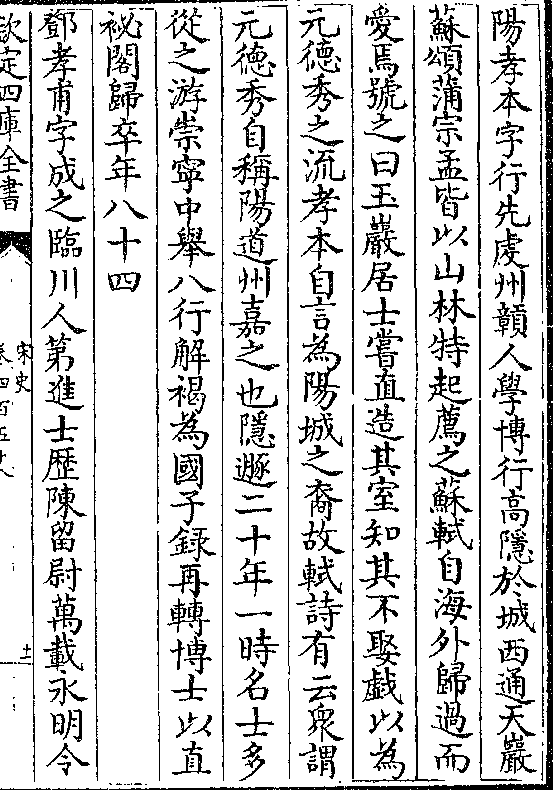 陽孝本字行先虔州贛人學博行高隱於城西通天巖
蘇頌蒲宗孟皆以山林特起薦之蘇軾自海外歸過而
愛焉號之曰玉巖居士嘗直造其室知其不娶戲以為
元德秀之流孝本自言為陽城之裔故軾詩有云衆謂
元德秀自稱陽道州嘉之也隱遯二十年一時名士多
從之游崇寧中舉八行解褐為國子錄再轉博士以直
祕閣歸卒年八十四
鄧孝甫字成之臨川人第進士歷陳留尉萬載永明令
欽定四庫全書
宋史
卷四百五十八
十二